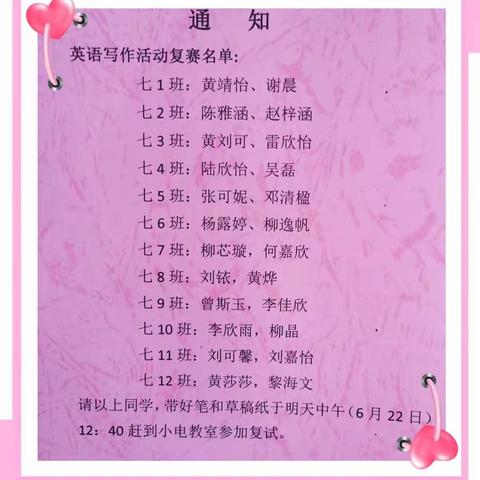 通 知
英语写作活动复赛名单:
七 1 班：黄靖怡、谢晨
七 2 班：陈雅涵、赵梓涵
七 3 班：黄刘可、雷欣怡
七 4 班：陆欣怡、吴磊
七 5 班：张可妮、邓清楹
七 6 班：杨露婷、柳逸帆
七 7 班：柳芯璇，何嘉欣
七 8 班：刘铱，黄烨
七 9 班：曾斯玉，李佳欣
七 10 班：李欣雨，柳晶
七 11 班：刘可馨，刘嘉怡
七 12 班：黄莎莎，黎海文
请以上同学，带好笔和草稿纸于明天中午（6 月 22 日）
12：40 赶到小电教室参加复试。